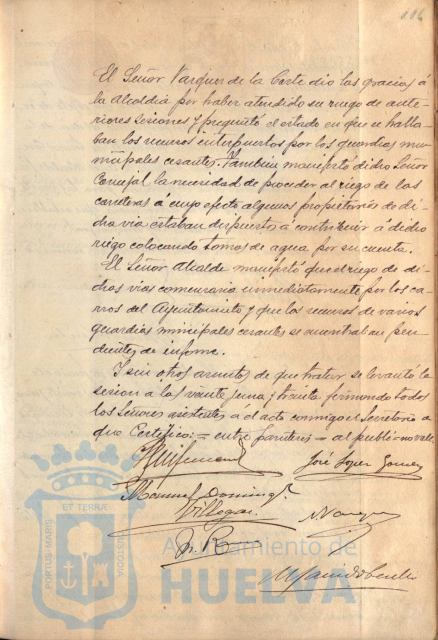 116
El Señor Vazquez de la Corte dio las gracias á
la Alcaldia por haber atendido su ruego de ante-
riores sesiones y preguntó el estado en que se halla-
ban los recursos interpuestos por los guardias mu-
nicipales cesantes. Tambien manifestó dicho Señor
Concejal la necesidad de proceder al riego de las
carreteras á cuyo efecto algunos propietarios de di-
cha via estaban dispuestos á contribuir á dicho
riego colocando tomas de agua por su cuenta.
El Señor Alcalde manifestó que el riego de di-
chas vias comenzaria inmediatamente por los ca-
rros del Ayuntamiento y que los recursos de varios
guardias municipales cesantes se encontraban pen-
dientes de informe.
Y sin otros asuntos de que tratar se levantó la
sesion a las veinte y treinta firmando todos
los Señores asistentes a el acto conmigo el Secretario
que Certifico: = entre parentesis = al publico = no vale.
José Lopez Gomez
Manuel Doming
Villegas
ET TERRÆ
PORTUS MARIS
CUSTODIA
Ayuntamiento de
HUELVA